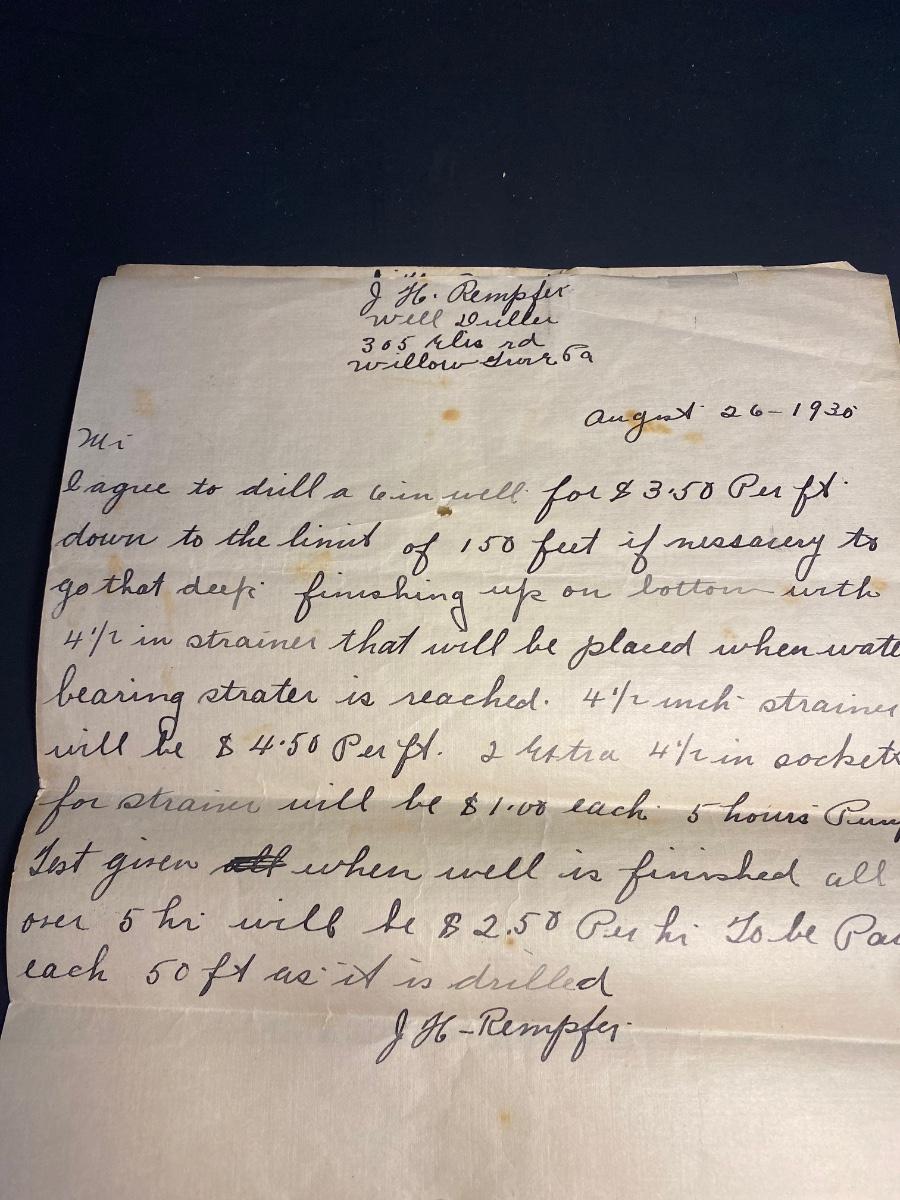 J. H. Rempfer
Well Driller
305 Elm rd
Willow Grove Pa
August 26-1930
Mr
I agree to drill a 6 in well for $3.50 Per ft.
down to the limit of 150 feet if nessacery to
go that deep. finishing up on bottom with
4 1/2 in strainer that will be placed when wate
bearing strater is reached. 4 1/2 inch strainer
will be $4.50 Per ft. 2 Extra 4 1/2 in sockets
for strainer will be $1.00 each 5 hours Pum
Test given all when well is finished all
over 5 hr will be $2.50 Per hr To be Pa
each 50 ft as it is drilled
J H-Rempfer.